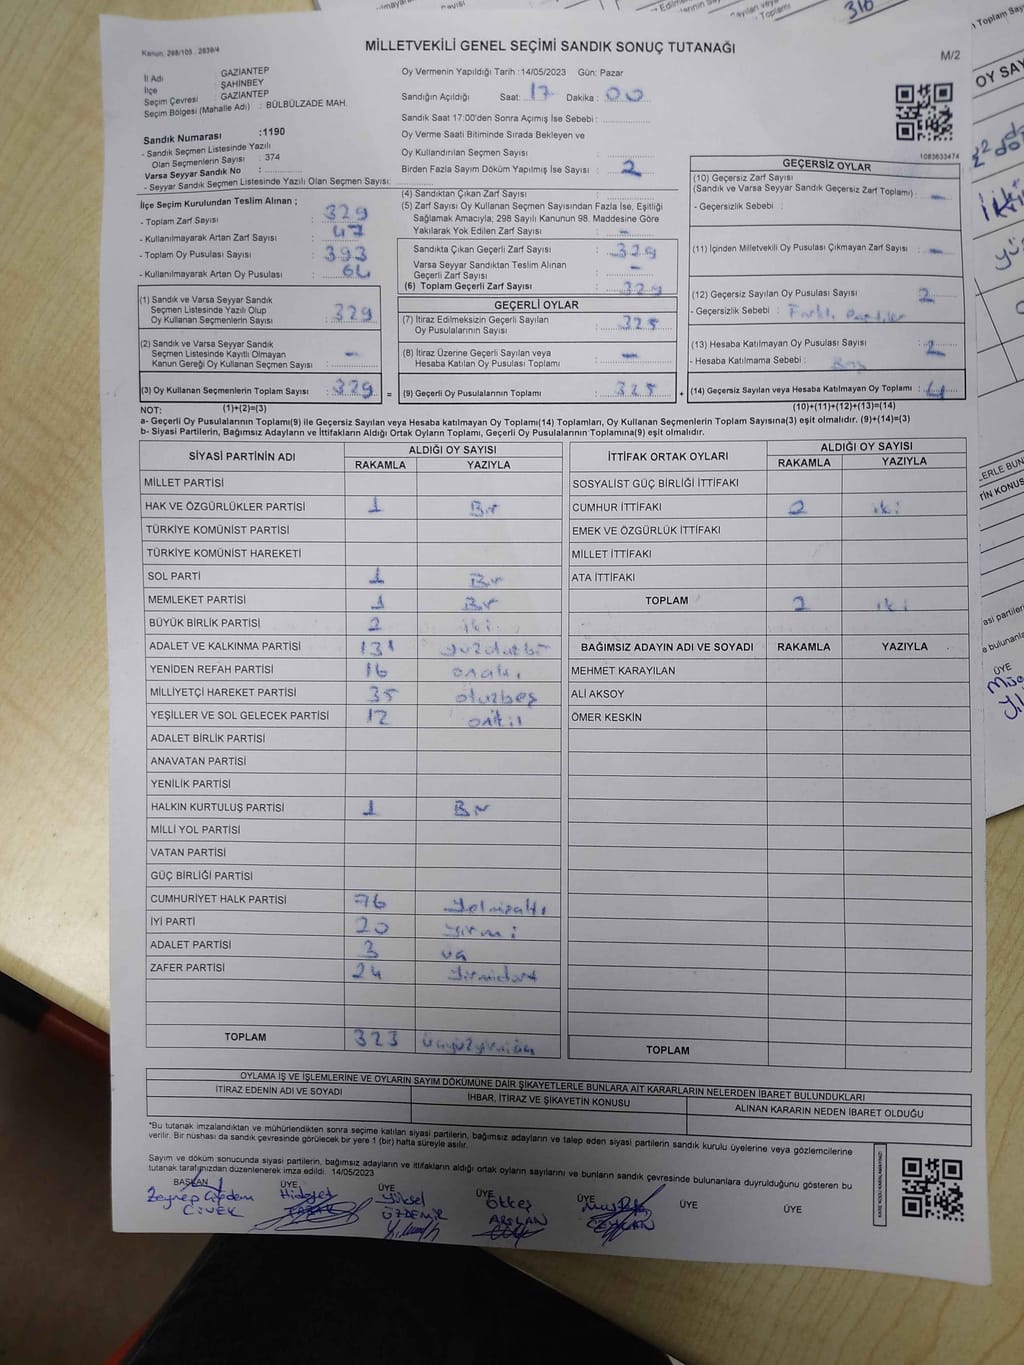 Kanun: 298/105 , 2839/4
MİLLETVEKİLİ GENEL SEÇİMİ SANDIK SONUÇ TUTANAĞI
M/2
İl Adı : GAZİANTEP
İlçe : ŞAHİNBEY
Seçim Çevresi : GAZİANTEP
Seçim Bölgesi (Mahalle Adı) : BÜLBÜLZADE MAH.
Sandık Numarası :1190
- Sandık Seçmen Listesinde Yazılı
Olan Seçmenlerin Sayısı : 374
Varsa Seyyar Sandık No :
- Seyyar Sandık Seçmen Listesinde Yazılı Olan Seçmen Sayısı:
Oy Vermenin Yapıldığı Tarih :14/05/2023 Gün: Pazar
Sandığın Açıldığı Saat: 17 Dakika : 00
Sandık Saat 17:00'den Sonra Açımış İse Sebebi :
Oy Verme Saati Bitiminde Sırada Bekleyen ve
Oy Kullandırılan Seçmen Sayısı :
Birden Fazla Sayım Döküm Yapılmış İse Sayısı : 2
1083633474
İlçe Seçim Kurulundan Teslim Alınan ;
- Toplam Zarf Sayısı : 329
- Kullanılmayarak Artan Zarf Sayısı : 47
- Toplam Oy Pusulası Sayısı : 393
- Kullanılmayarak Artan Oy Pusulası : 64
(1) Sandık ve Varsa Seyyar Sandık
Seçmen Listesinde Yazılı Olup
Oy Kullanan Seçmenlerin Sayısı : 329
(2) Sandık ve Varsa Seyyar Sandık
Seçmen Listesinde Kayıtlı Olmayan
Kanun Gereği Oy Kullanan Seçmen Sayısı : -
(3) Oy Kullanan Seçmenlerin Toplam Sayısı : 329 =
(1)+(2)=(3)
(4) Sandıktan Çıkan Zarf Sayısı :
(5) Zarf Sayısı Oy Kullanan Seçmen Sayısından Fazla İse, Eşitliği
Sağlamak Amacıyla; 298 Sayılı Kanunun 98. Maddesine Göre
Yakılarak Yok Edilen Zarf Sayısı : -
Sandıkta Çıkan Geçerli Zarf Sayısı : 329
Varsa Seyyar Sandıktan Teslim Alınan
Geçerli Zarf Sayısı : -
(6) Toplam Geçerli Zarf Sayısı : 329
GEÇERLİ OYLAR
(7) İtiraz Edilmeksizin Geçerli Sayılan
Oy Pusulalarının Sayısı : 325
(8) İtiraz Üzerine Geçerli Sayılan veya
Hesaba Katılan Oy Pusulası Toplamı : -
(9) Geçerli Oy Pusulalarının Toplamı : 325 +
GEÇERSİZ OYLAR
(10) Geçersiz Zarf Sayısı
(Sandık ve Varsa Seyyar Sandık Geçersiz Zarf Toplamı) : -
- Geçersizlik Sebebi :
(11) İçinden Milletvekili Oy Pusulası Çıkmayan Zarf Sayısı : -
(12) Geçersiz Sayılan Oy Pusulası Sayısı : 2
- Geçersizlik Sebebi : Farklı Partiler
(13) Hesaba Katılmayan Oy Pusulası Sayısı : 2
- Hesaba Katılmama Sebebi : Boş
(14) Geçersiz Sayılan veya Hesaba Katılmayan Oy Toplamı : 4
(10)+(11)+(12)+(13)=(14)
NOT:
a- Geçerli Oy Pusulasının Toplamı(9) ile Geçersiz Sayılan veya Hesaba katılmayan Oy Toplamı(14) Toplamları, Oy Kullanan Seçmenlerin Toplam Sayısına(3) eşit olmalıdır. (9)+(14)=(3)
b- Siyasi Partilerin, Bağımsız Adayların ve İttifakların Aldığı Ortak Oyların Toplamı, Geçerli Oy Pusulalarının Toplamına(9) eşit olmalıdır.
SİYASİ PARTİNİN ADI ALDIĞI OY SAYISI
RAKAMLA YAZIYLA
MİLLET PARTİSİ
HAK VE ÖZGÜRLÜKLER PARTİSİ 1 Bir
TÜRKİYE KOMÜNİST PARTİSİ
TÜRKİYE KOMÜNİST HAREKETİ
SOL PARTİ 1 Bir
MEMLEKET PARTİSİ 1 Bir
BÜYÜK BİRLİK PARTİSİ 2 iki
ADALET VE KALKINMA PARTİSİ 131
YENİDEN REFAH PARTİSİ 16 onaltı
MİLLİYETÇİ HAREKET PARTİSİ 35 otuzbeş
YEŞİLLER VE SOL GELECEK PARTİSİ 12
ADALET BİRLİK PARTİSİ
ANAVATAN PARTİSİ
YENİLİK PARTİSİ
HALKIN KURTULUŞ PARTİSİ 1 Bir
MİLLİ YOL PARTİSİ
VATAN PARTİSİ
GÜÇ BİRLİĞİ PARTİSİ
CUMHURİYET HALK PARTİSİ 76 Yetmişaltı
İYİ PARTİ 20 yirmi
ADALET PARTİSİ 3 üç
ZAFER PARTİSİ 24 Yirmidört
TOPLAM 323 üçyüzyirmiüç
İTTİFAK ORTAK OYLARI ALDIĞI OY SAYISI
RAKAMLA YAZIYLA
SOSYALİST GÜÇ BİRLİĞİ İTTİFAKI
CUMHUR İTTİFAKI 2 iki
EMEK VE ÖZGÜRLÜK İTTİFAKI
MİLLET İTTİFAKI
ATA İTTİFAKI
TOPLAM 2 iki
BAĞIMSIZ ADAYIN ADI VE SOYADI RAKAMLA YAZIYLA
MEHMET KARAYILAN
ALİ AKSOY
ÖMER KESKİN
TOPLAM
OYLAMA İŞ VE İŞLEMLERİNE VE OYLARIN SAYIM DÖKÜMÜNE DAİR ŞİKAYETLERLE BUNLARA AİT KARARLARIN NELERDEN İBARET BULUNDUKLARI
İTİRAZ EDENİN ADI VE SOYADI İHBAR, İTİRAZ VE ŞİKAYETİN KONUSU ALINAN KARARIN NEDEN İBARET OLDUĞU
*Bu tutanak imzalandıktan ve mühürlendikten sonra seçime katılan siyasi partilerin, bağımsız adayların ve talep eden siyasi partilerin sandık kurulu üyelerine veya gözlemcilerine
verilir. Bir nüshası da sandık çevresinde görülecek bir yere 1 (bir) hafta süreyle asılır.
Sayım ve döküm sonucunda siyasi partilerin, bağımsız adayların ve ittifakların aldığı ortak oyların sayılarını ve bunların sandık çevresinde bulunanlara duyrulduğunu gösteren bu
tutanak tarafımızdan düzenlenerek imza edildi. 14/05/2023
BAŞKAN ÜYE ÜYE ÜYE ÜYE ÜYE ÜYE
Zeynep Çiğdem Hidayet Yüksel Ökkeş
CİVEK ÖZDEMİR ARSLAN CEYLAN